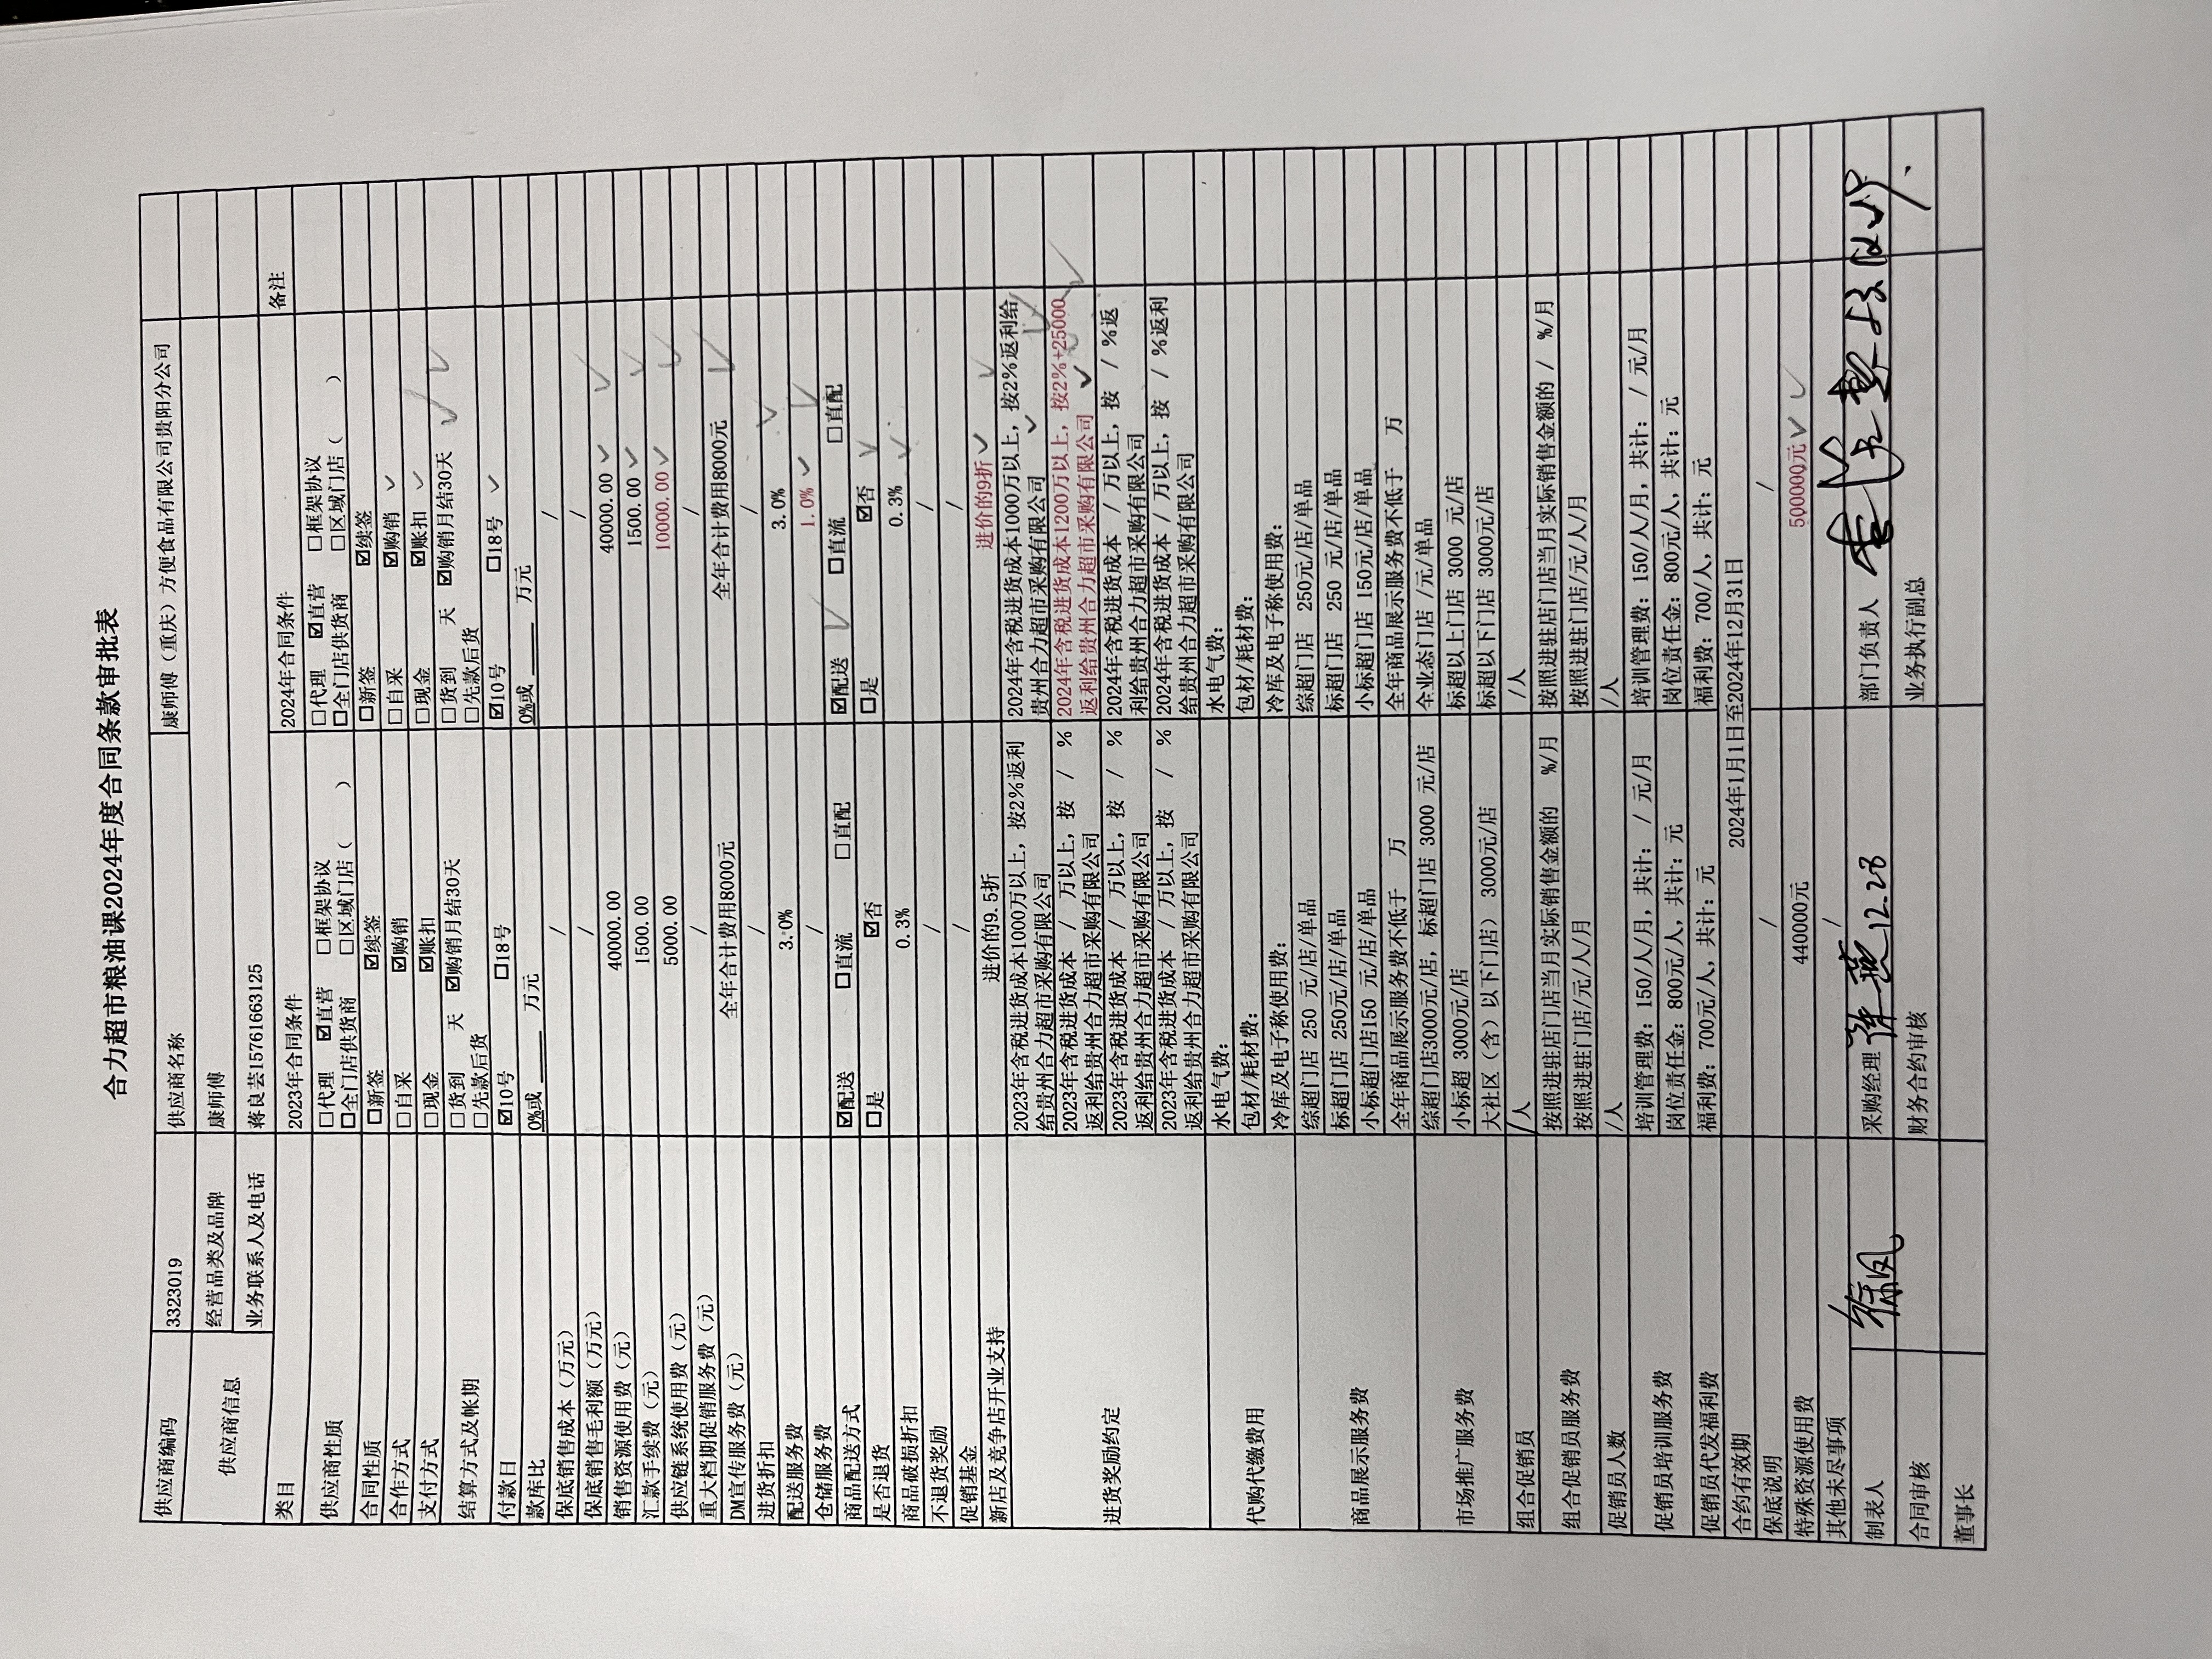 合力超市粮油课2024年度合同条款审批表
供应商编码 3323019 供应商名称 康师傅（重庆）方便食品有限公司贵阳分公司
供应商信息 经营品类及品牌 康师傅
业务联系人及电话 蒋良芸15761663125
类目 2023年合同条件 2024年合同条件 备注
供应商性质 □代理 ☑直营 □框架协议 □代理 ☑直营 □框架协议
□全门店供货商 □区域门店（ ） □全门店供货商 □区域门店（ ）
合同性质 □新签 ☑续签 □新签 ☑续签
合作方式 □自采 ☑购销 □自采 ☑购销 ✓
支付方式 □现金 ☑账扣 □现金 ☑账扣 ✓
结算方式及帐期 □货到 天 ☑购销月结30天 □货到 天 ☑购销月结30天 ✓ ✓
□先款后货 □先款后货
付款日 ☑10号 □18号 ☑10号 □18号 ✓
款库比 0%或____万元 0%或____万元
保底销售成本（万元） / /
保底销售毛利额（万元） / /
销售资源使用费（元） 40000.00 40000.00 ✓ ✓
汇款手续费（元） 1500.00 1500.00 ✓ ✓
供应链系统使用费（元） 5000.00 10000.00 ✓ ✓
重大档期促销服务费（元） / /
DM宣传服务费（元） 全年合计费用8000元 全年合计费用8000元 ✓
进货折扣 / /
配送服务费 3.0% 3.0% ✓
仓储服务费 / 1.0% ✓ ✓
商品配送方式 ☑配送 □直流 □直配 ☑配送 ✓ □直流 □直配
是否退货 □是 ☑否 □是 ☑否 ✓
商品破损折扣 0.3% 0.3% ✓
不退货奖励 / /
促销基金 / /
新店及竞争店开业支持 进价的9.5折 进价的9折 ✓ ✓
进货奖励约定 2023年含税进货成本1000万以上，按2%返利 2024年含税进货成本1000万以上，按2%返利给
给贵州合力超市采购有限公司 贵州合力超市采购有限公司 ✓ ✓
2023年含税进货成本 / 万以上，按 / % 2024年含税进货成本1200万以上，按2%+25000
返利给贵州合力超市采购有限公司 返利给贵州合力超市采购有限公司 ✓ ✓
2023年含税进货成本 / 万以上，按 / % 2024年含税进货成本 / 万以上，按 / %返
返利给贵州合力超市采购有限公司 利给贵州合力超市采购有限公司
2023年含税进货成本 / 万以上，按 / % 2024年含税进货成本 / 万以上，按 / %返利
返利给贵州合力超市采购有限公司 给贵州合力超市采购有限公司
代购代缴费用 水电气费： 水电气费：
包材/耗材费： 包材/耗材费：
冷库及电子称使用费： 冷库及电子称使用费：
商品展示服务费 综超门店 250 元/店/单品 综超门店 250元/店/单品
标超门店 250元/店/单品 标超门店 250 元/店/单品
小标超门店150 元/店/单品 小标超门店 150元/店/单品
全年商品展示服务费不低于 万 全年商品展示服务费不低于 万
市场推广服务费 综超门店3000元/店，标超门店 3000 元/店 全业态门店 /元/单品
小标超 3000元/店 标超以上门店 3000 元/店
大社区（含）以下门店）3000元/店 标超以下门店 3000元/店
组合促销员 /人 /人
组合促销员服务费 按照进驻店门店当月实际销售金额的 %/月 按照进驻店门店当月实际销售金额的 / %/月
按照进驻门店/元/人/月 按照进驻门店/元/人/月
促销员人数 /人 /人
促销员培训服务费 培训管理费：150/人/月，共计： / 元/月 培训管理费：150/人/月，共计： / 元/月
岗位责任金：800元/人，共计：元 岗位责任金：800元/人，共计：元
促销员代发福利费 福利费：700元/人，共计：元 福利费：700/人，共计：元
合约有效期 2024年1月1日至2024年12月31日
保底说明 / /
特殊资源使用费 440000元 500000元 ✓ ✓
其他未尽事项 /
制表人 采购经理 12.28 部门负责人
合同审核 财务合约审核 业务执行副总
董事长